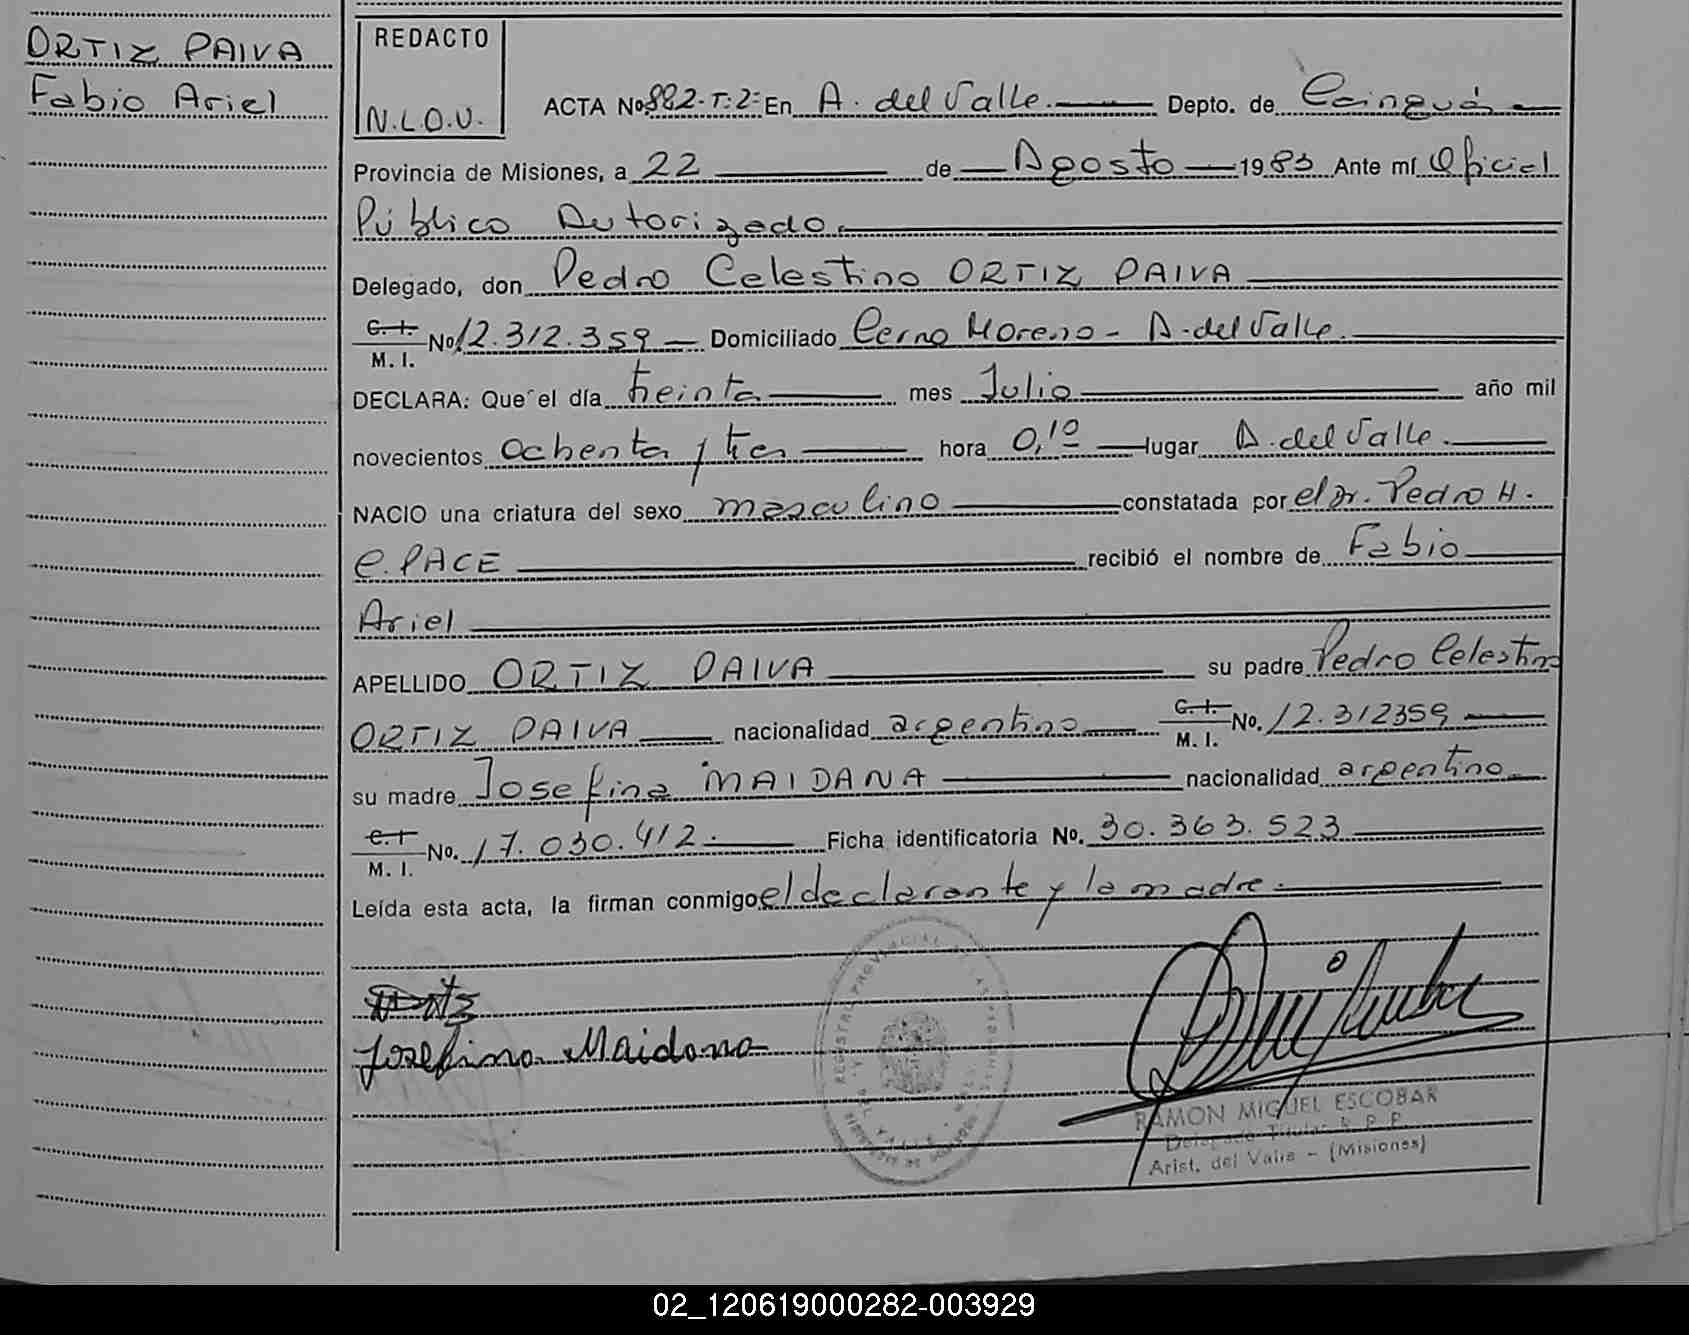 ORTIZ PAIVA
Fabio Ariel
REDACTO
N.L.O.V.
ACTA No. 882-T:2- En A. del Valle. Depto. de Cainguás
Provincia de Misiones, a 22 de Agosto 1983 Ante mí Oficial
Público Autorizado.
Delegado, don Pedro Celestino ORTIZ PAIVA
C. I. M. I. No. 12.312.359 Domiciliado Cerro Moreno - A. del Valle.
DECLARA: Que el día treinta mes Julio año mil
novecientos ochenta y tres hora 0,10 lugar A. del Valle.
NACIO una criatura del sexo masculino constatada por el Dr. Pedro H.
C. PACE recibió el nombre de Fabio
Ariel
APELLIDO ORTIZ PAIVA su padre Pedro Celestino
ORTIZ PAIVA nacionalidad argentino C. I. M. I. No. 12.312359
su madre Josefina MAIDANA nacionalidad argentino
C. I M. I. No. 17.030.412. Ficha identificatoria No. 30.363.523
Leída esta acta, la firman conmigo el declarante y la madre.
Josefina Maidana
RAMON MIGUEL ESCOBAR
Delegado Titular R. P. P.
Arist. del Valle - (Misiones)
02_120619000282-003929